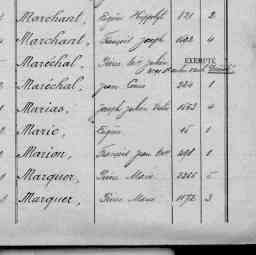 Marchant, Eugène Hippolyte 121 2
Marchant, François Joseph 1592 4
Maréchal, Pierre
EXEMPTÉ
Maréchal, Jean Louis 224 1
Marias, Joseph Julien 1563 4
Marie, Eugène 15 1
Marion, François Jean 498 1
Marquer, Pierre Marie 2366 5
Marquer, Pierre Marie 1172 3